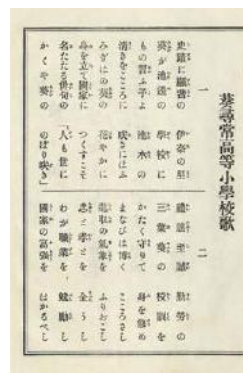 葵尋常高等小學校歌
一
史蹟に の 伊奈の里
葵が池邊の 學校に
もの習ふ子よ 池水の
清きをこころに 咲きにほふ
みぎはの葵の 花やかに
身を立て國家に つくすこそ
名たたる俳句の 「人も世に
かくや葵の のぼり咲き」
二
禮節至誠 勤勞の
三葉葵の 校訓を
かたく守りて 身を修め
まなびは博く こころざし
の氣象を ふりおこし
忠と孝とを 全うし
わが職業を 勉勵し
國家の富强を はかるべし